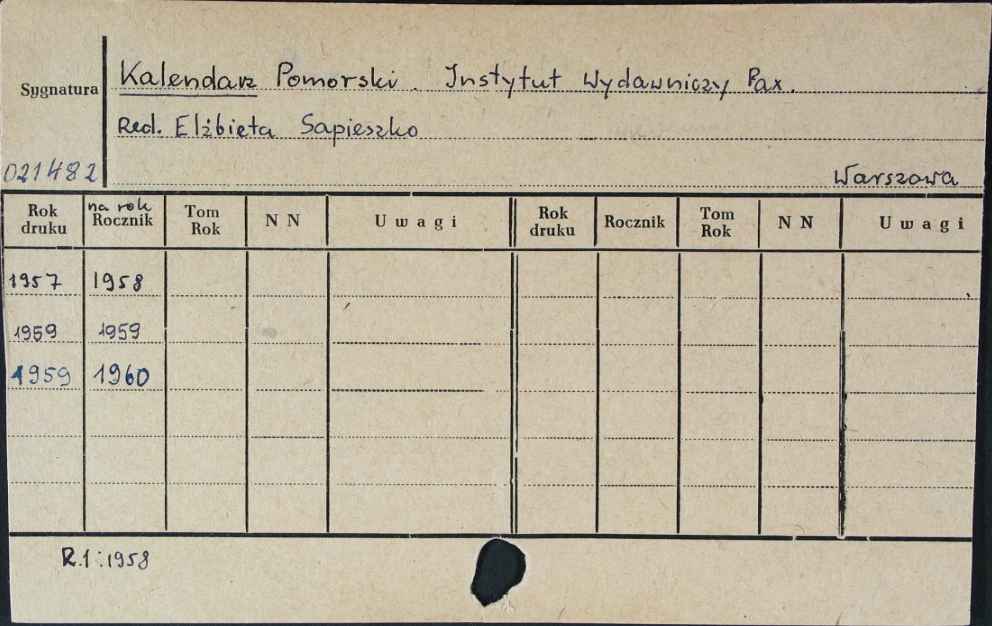 Kalendarz Pomorski. Instytut Wydawniczy Pax.
Sygnatura
Red. Elżbieta Sapieszko
021482
Warszawa
Rok druku na rok Rocznik Tom Rok NN Uwagi Rok druku Rocznik Tom Rok NN Uwagi
1957 1958
1959 1959
1959 1960
R.1:1958